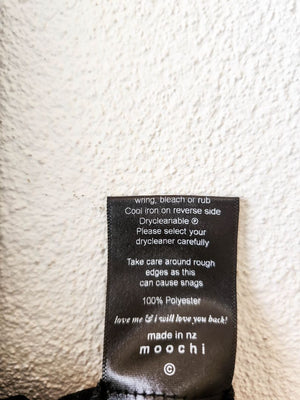 wring, bleach or rub
Cool iron on reverse side
Drycleanable Ⓟ
Please select your
drycleaner carefully
Take care around rough
edges as this
can cause snags
100% Polyester
love me & i will love you back!
made in nz
moochi
©